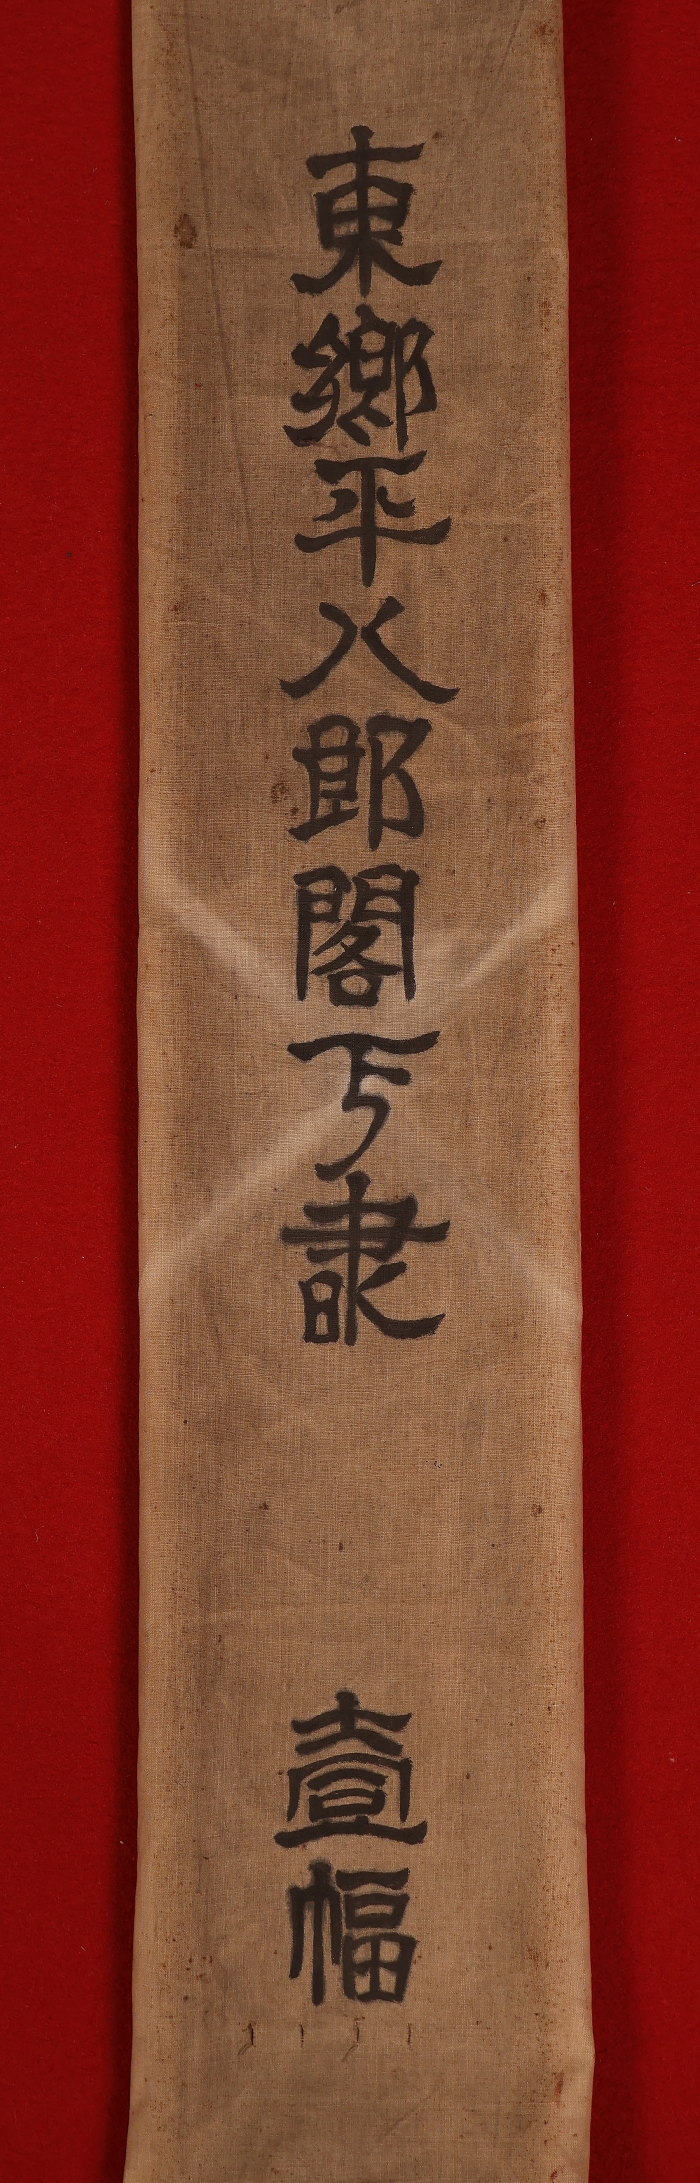 東郷平八郎閣下 壹幅